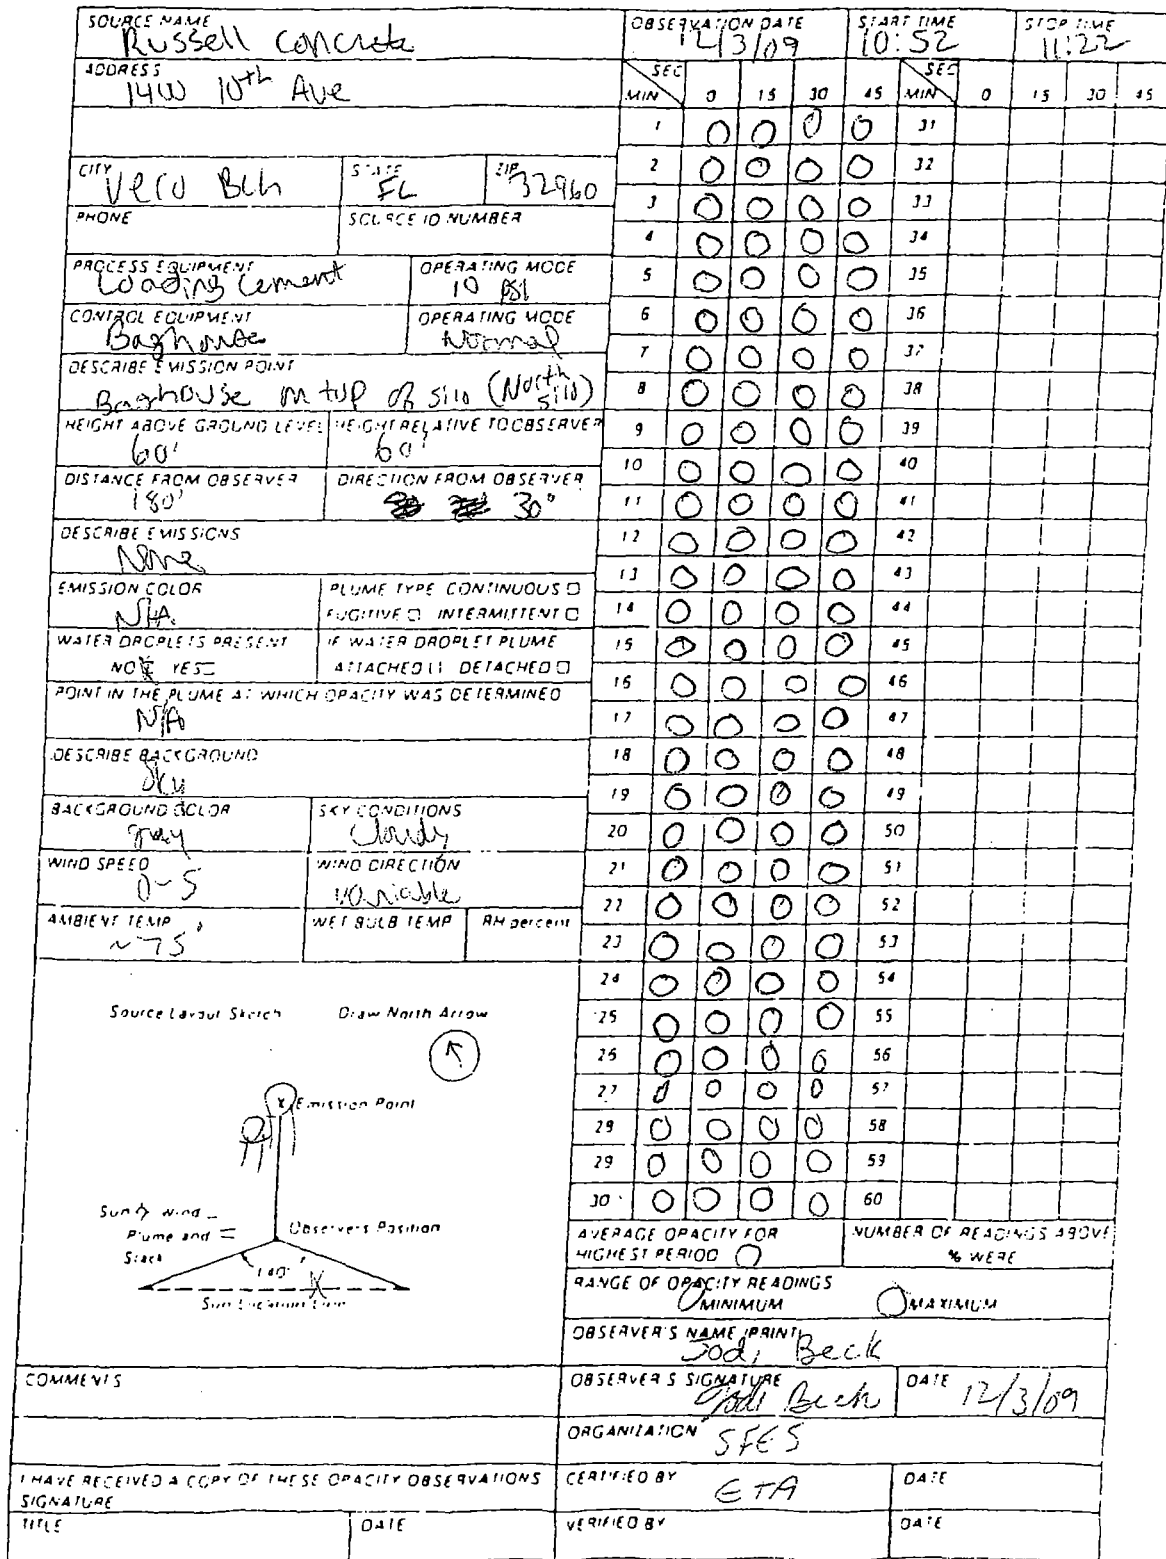 SOURCE NAME
Russell Concrete
OBSERVATION DATE
12/3/09
START TIME
10:52
STOP TIME
11:22
ADDRESS
1400 10th Ave
CITY
Vero Bch
STATE
FL
ZIP
32960
PHONE
SOURCE ID NUMBER
PROCESS EQUIPMENT
Loading Cement
OPERATING MODE
10 PSI
CONTROL EQUIPMENT
Baghouse
OPERATING MODE
Normal
DESCRIBE EMISSION POINT
Baghouse on top of silo (North silo)
HEIGHT ABOVE GROUND LEVEL
60'
HEIGHT RELATIVE TO OBSERVER
60'
DISTANCE FROM OBSERVER
180'
DIRECTION FROM OBSERVER
30°
DESCRIBE EMISSIONS
None
EMISSION COLOR
N/A
PLUME TYPE CONTINUOUS □
FUGITIVE □ INTERMITTENT □
WATER DROPLETS PRESENT
NO ☒ YES □
IF WATER DROPLET PLUME
ATTACHED □ DETACHED □
POINT IN THE PLUME AT WHICH OPACITY WAS DETERMINED
N/A
DESCRIBE BACKGROUND
Sky
BACKGROUND COLOR
gray
SKY CONDITIONS
Cloudy
WIND SPEED
0-5
WIND DIRECTION
variable
AMBIENT TEMP
~75°
WET BULB TEMP
RH percent
Source Layout Sketch Draw North Arrow
X Emission Point
Sun Wind
Plume and
Stack
Observers Position
140°
Sun Location Line
SEC
MIN 0 15 30 45
SEC
MIN 0 15 30 45
1 0 0 0 0 31
2 0 0 0 0 32
3 0 0 0 0 33
4 0 0 0 0 34
5 0 0 0 0 35
6 0 0 0 0 36
7 0 0 0 0 37
8 0 0 0 0 38
9 0 0 0 0 39
10 0 0 0 0 40
11 0 0 0 0 41
12 0 0 0 0 42
13 0 0 0 0 43
14 0 0 0 0 44
15 0 0 0 0 45
16 0 0 0 0 46
17 0 0 0 0 47
18 0 0 0 0 48
19 0 0 0 0 49
20 0 0 0 0 50
21 0 0 0 0 51
22 0 0 0 0 52
23 0 0 0 0 53
24 0 0 0 0 54
25 0 0 0 0 55
26 0 0 0 0 56
27 0 0 0 0 57
28 0 0 0 0 58
29 0 0 0 0 59
30 0 0 0 0 60
AVERAGE OPACITY FOR
HIGHEST PERIOD 0
NUMBER OF READINGS ABOVE
% WERE
RANGE OF OPACITY READINGS
0 MINIMUM 0 MAXIMUM
OBSERVER'S NAME (PRINT)
Jodi Beck
COMMENTS
OBSERVER'S SIGNATURE
Jodi Beck
DATE
12/3/09
ORGANIZATION
SFES
I HAVE RECEIVED A COPY OF THESE OPACITY OBSERVATIONS
SIGNATURE
CERTIFIED BY
ETA
DATE
TITLE
DATE
VERIFIED BY
DATE